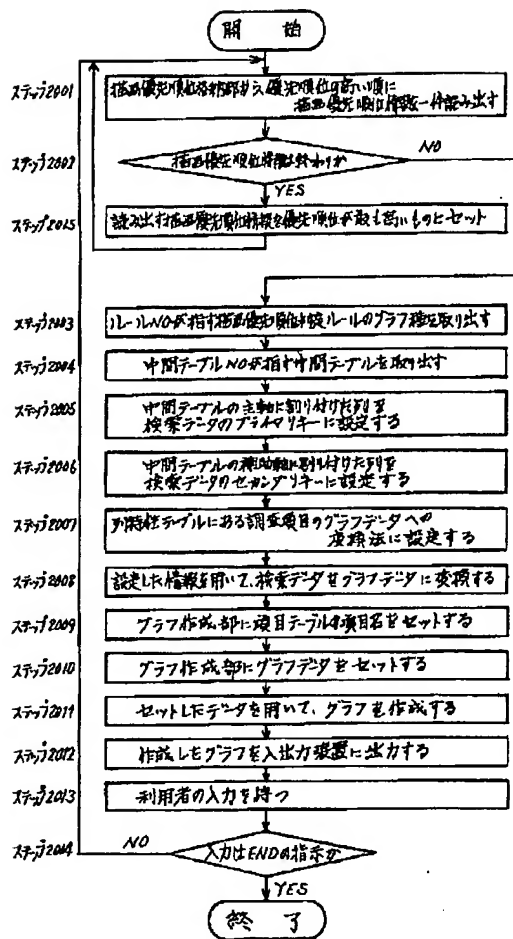 開始
ステップ2001
描画優先順位格納部から優先順位の高い順に
描画優先順位情報を一件読み出す
ステップ2002
描画優先順位情報は終わりか
NO
YES
ステップ2015
読み出す描画優先順位情報を優先順位が最も高いものにセット
ステップ2003
ルールNOが指す描画優先順位決定ルールのグラフ種を取り出す
ステップ2004
中間テーブルNOが指す中間テーブルを取り出す
ステップ2005
中間テーブルの主軸に割り付けた列を
検索データのプライマリキーに設定する
ステップ2006
中間テーブルの補助軸に割り付けた列を
検索データのセカンダリキーに設定する
ステップ2007
列特性テーブルにある調査項目のグラフデータへの
変換法に設定する
ステップ2008
設定した情報を用いて、検索データをグラフデータに変換する
ステップ2009
グラフ作成部に項目テーブルの項目名をセットする
ステップ2010
グラフ作成部にグラフデータをセットする
ステップ2011
セットしたデータを用いて、グラフを作成する
ステップ2012
作成したグラフを入出力装置に出力する
ステップ2013
利用者の入力を待つ
ステップ2014
NO
入力はENDの指示か
YES
終了